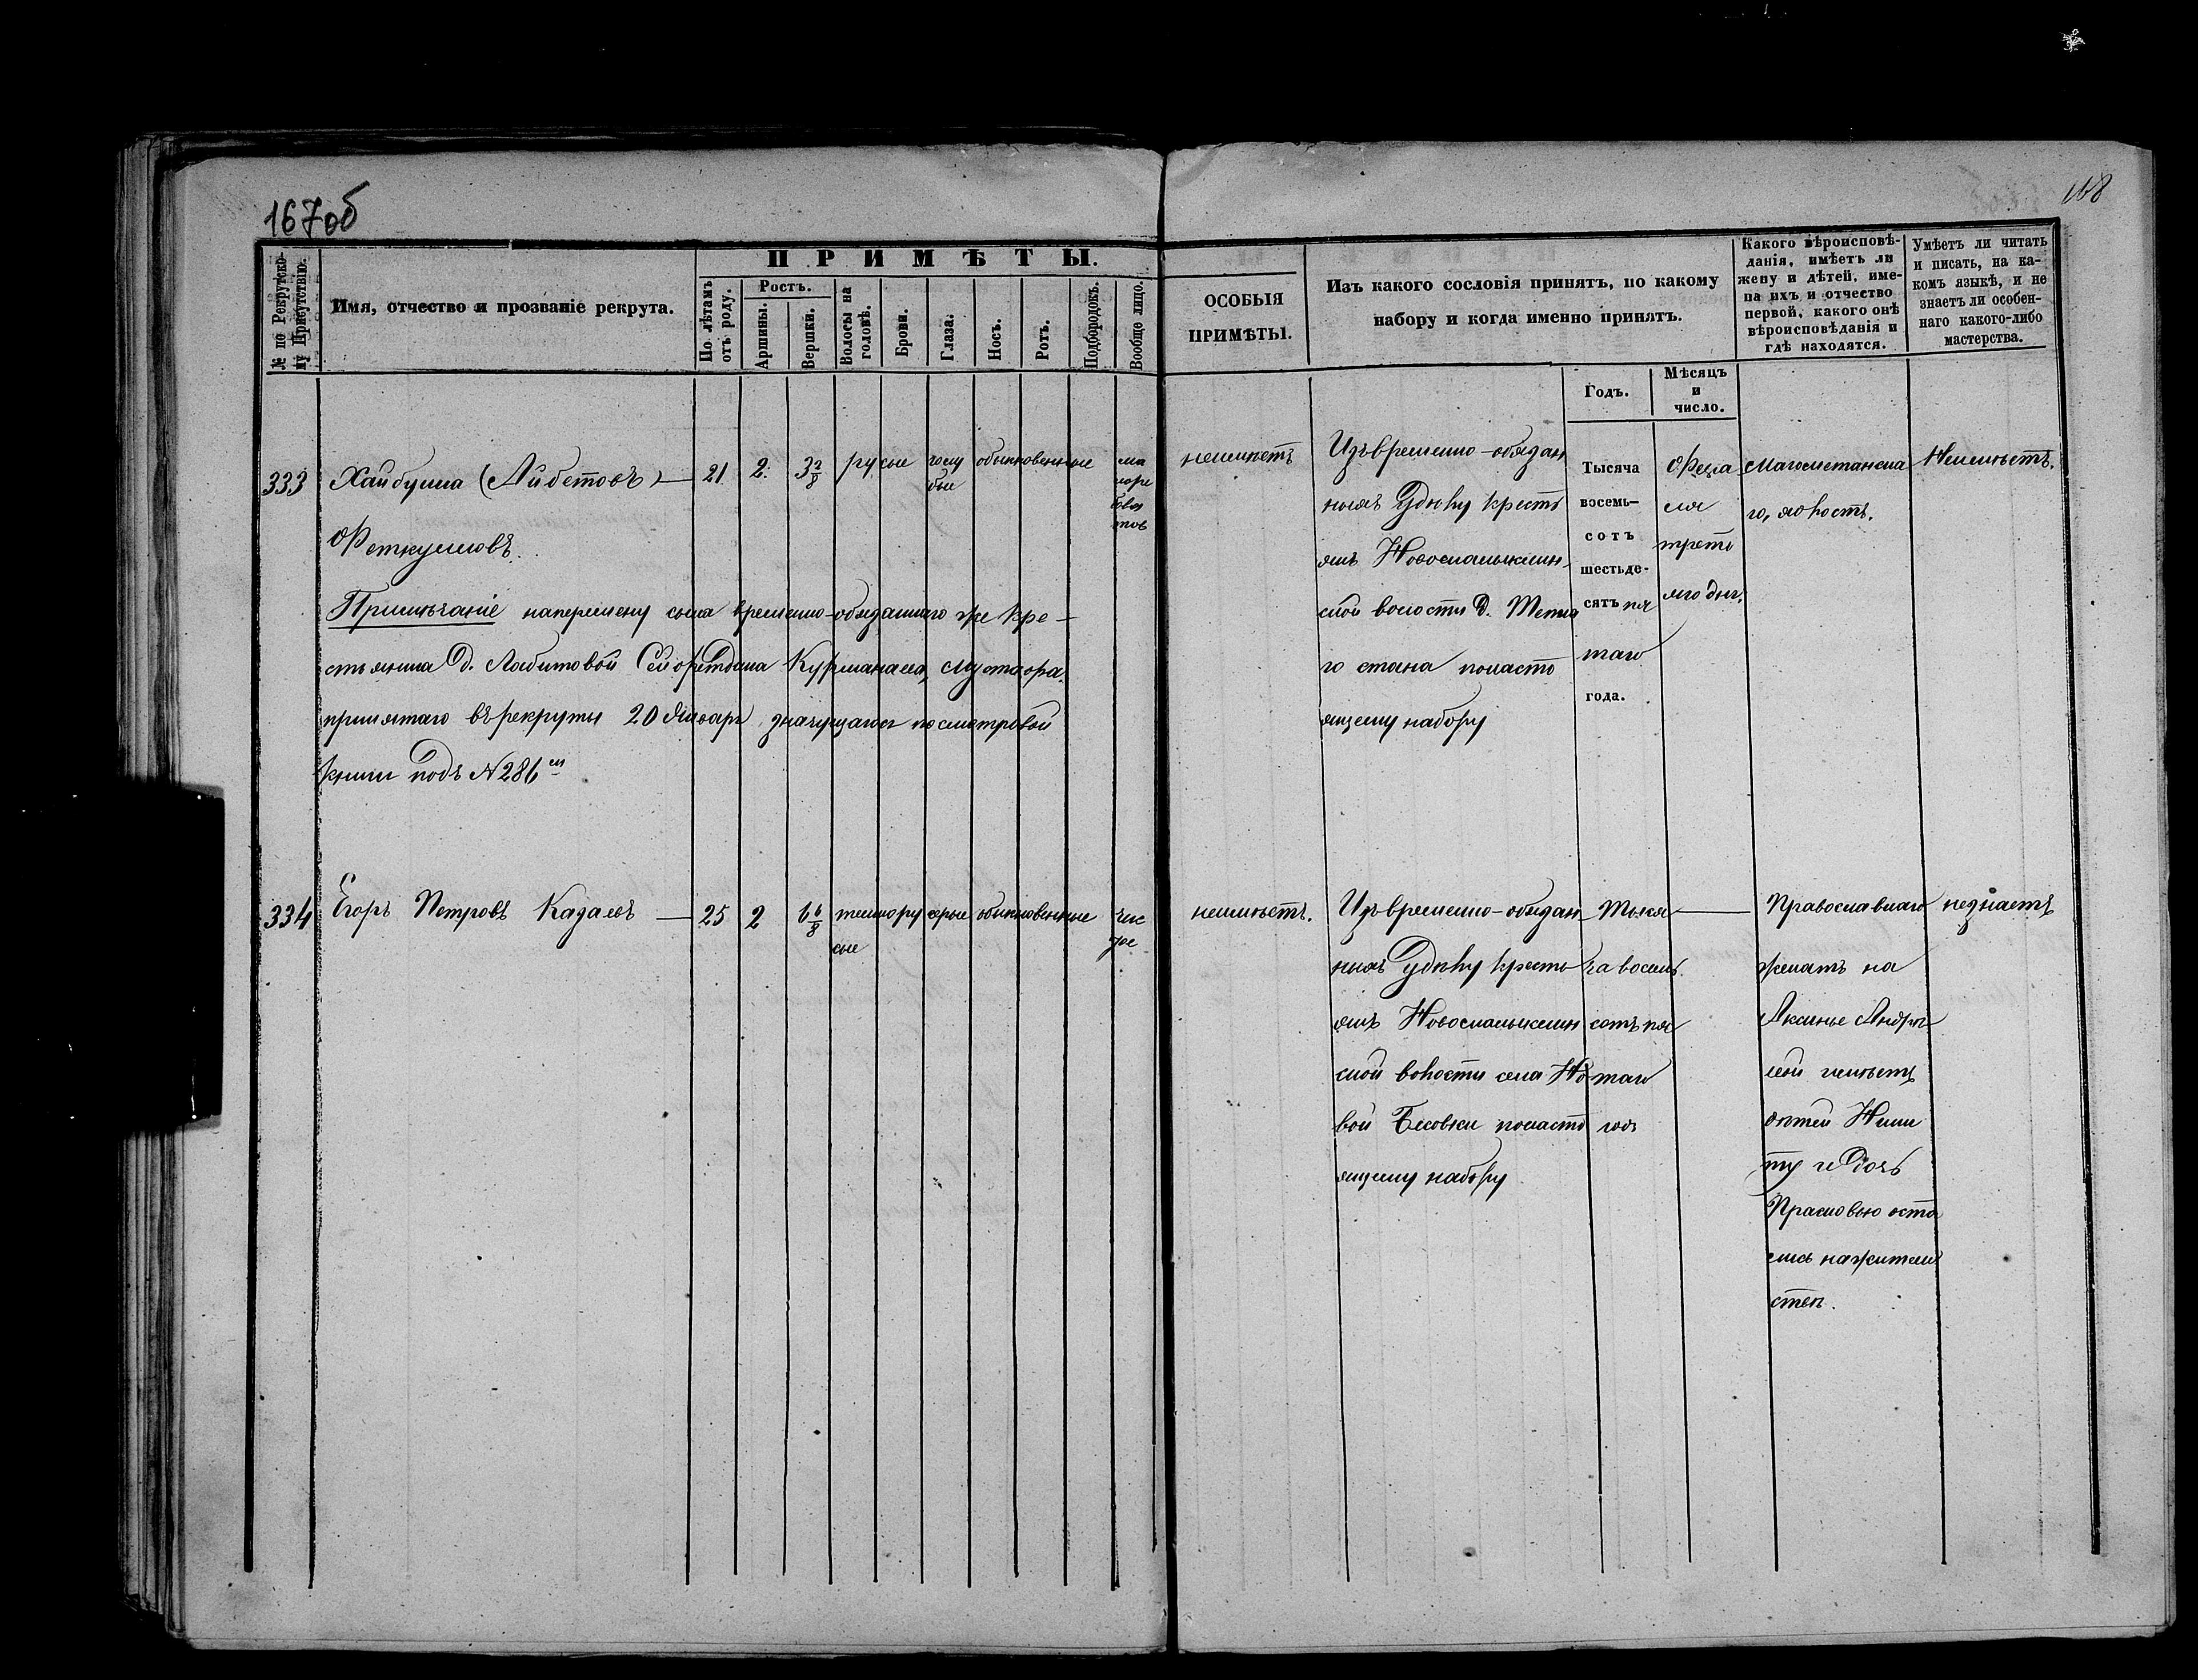 167об
168
№ по Рекрутско-
му Присутствію.
Имя, отчество и прозваніе рекрута.
ПРИМѢТЫ.
По лѣтамъ
отъ роду.
Ростъ.
Аршины.
Вершки.
Волосы на
головѣ.
Брови.
Глаза.
Носъ.
Ротъ.
Подбородокъ.
Вообще лицо.
ОСОБЫЯ
ПРИМѢТЫ.
Изъ какого сословія принятъ, по какому
набору и когда именно принятъ.
Какого вѣроисповѣ-
данія, имѣетъ ли
жену и дѣтей, име-
на ихъ и отчество
первой, какого онѣ
вѣроисповѣданія и
гдѣ находятся.
Умѣетъ ли читать
и писать, на ка-
комъ языкѣ, и не
знаетъ ли особен-
наго какого-либо
мастерства.
Годъ.
Мѣсяцъ
и
число.
333
Хайбулла (Айбетовъ)
Феткулловъ.
Примѣчаніе наперемену сына временно-обязаннаго же кре-
стьянина д. Лабитовой Сейфетдина Курманаева, Мустафа.
принятаго въ рекруты 20 Января значущагося по смотровой
книги подъ №286 ш
21
2.
3 2/8
русые
голу
бые
обыкновенные
неимѣетъ
Изъ временно-обязан
ныхъ Удѣлу крестъ
янъ Новомалыклин-
ской волости д. Темна
го стана понасто
ящему набору
Тысяча
восемь-
сотъ
шестьде-
сятъ пя
таго
года.
Февра
ля
треть
яго дня.
Магометанска
го, холостъ.
Неимѣетъ.
334
Егоръ Петровъ Казаевъ
25
2
6 6/8
темнору
сые
серые
обыкновенные
чис
тое
неимѣетъ.
Изъ временно-обязан
ныхъ Удѣлу кресть
янъ Новомалыклин
ской волости села Но
вой Бесовки понасто
ящему набору
Тыся
ча восемь
сотъ пя
таго
года
Православнаго
женатъ на
Аксинье Андре
евой имѣетъ
детей Ники
ту и дочь
Прасковью оста
лись на жительст
незнаетъ